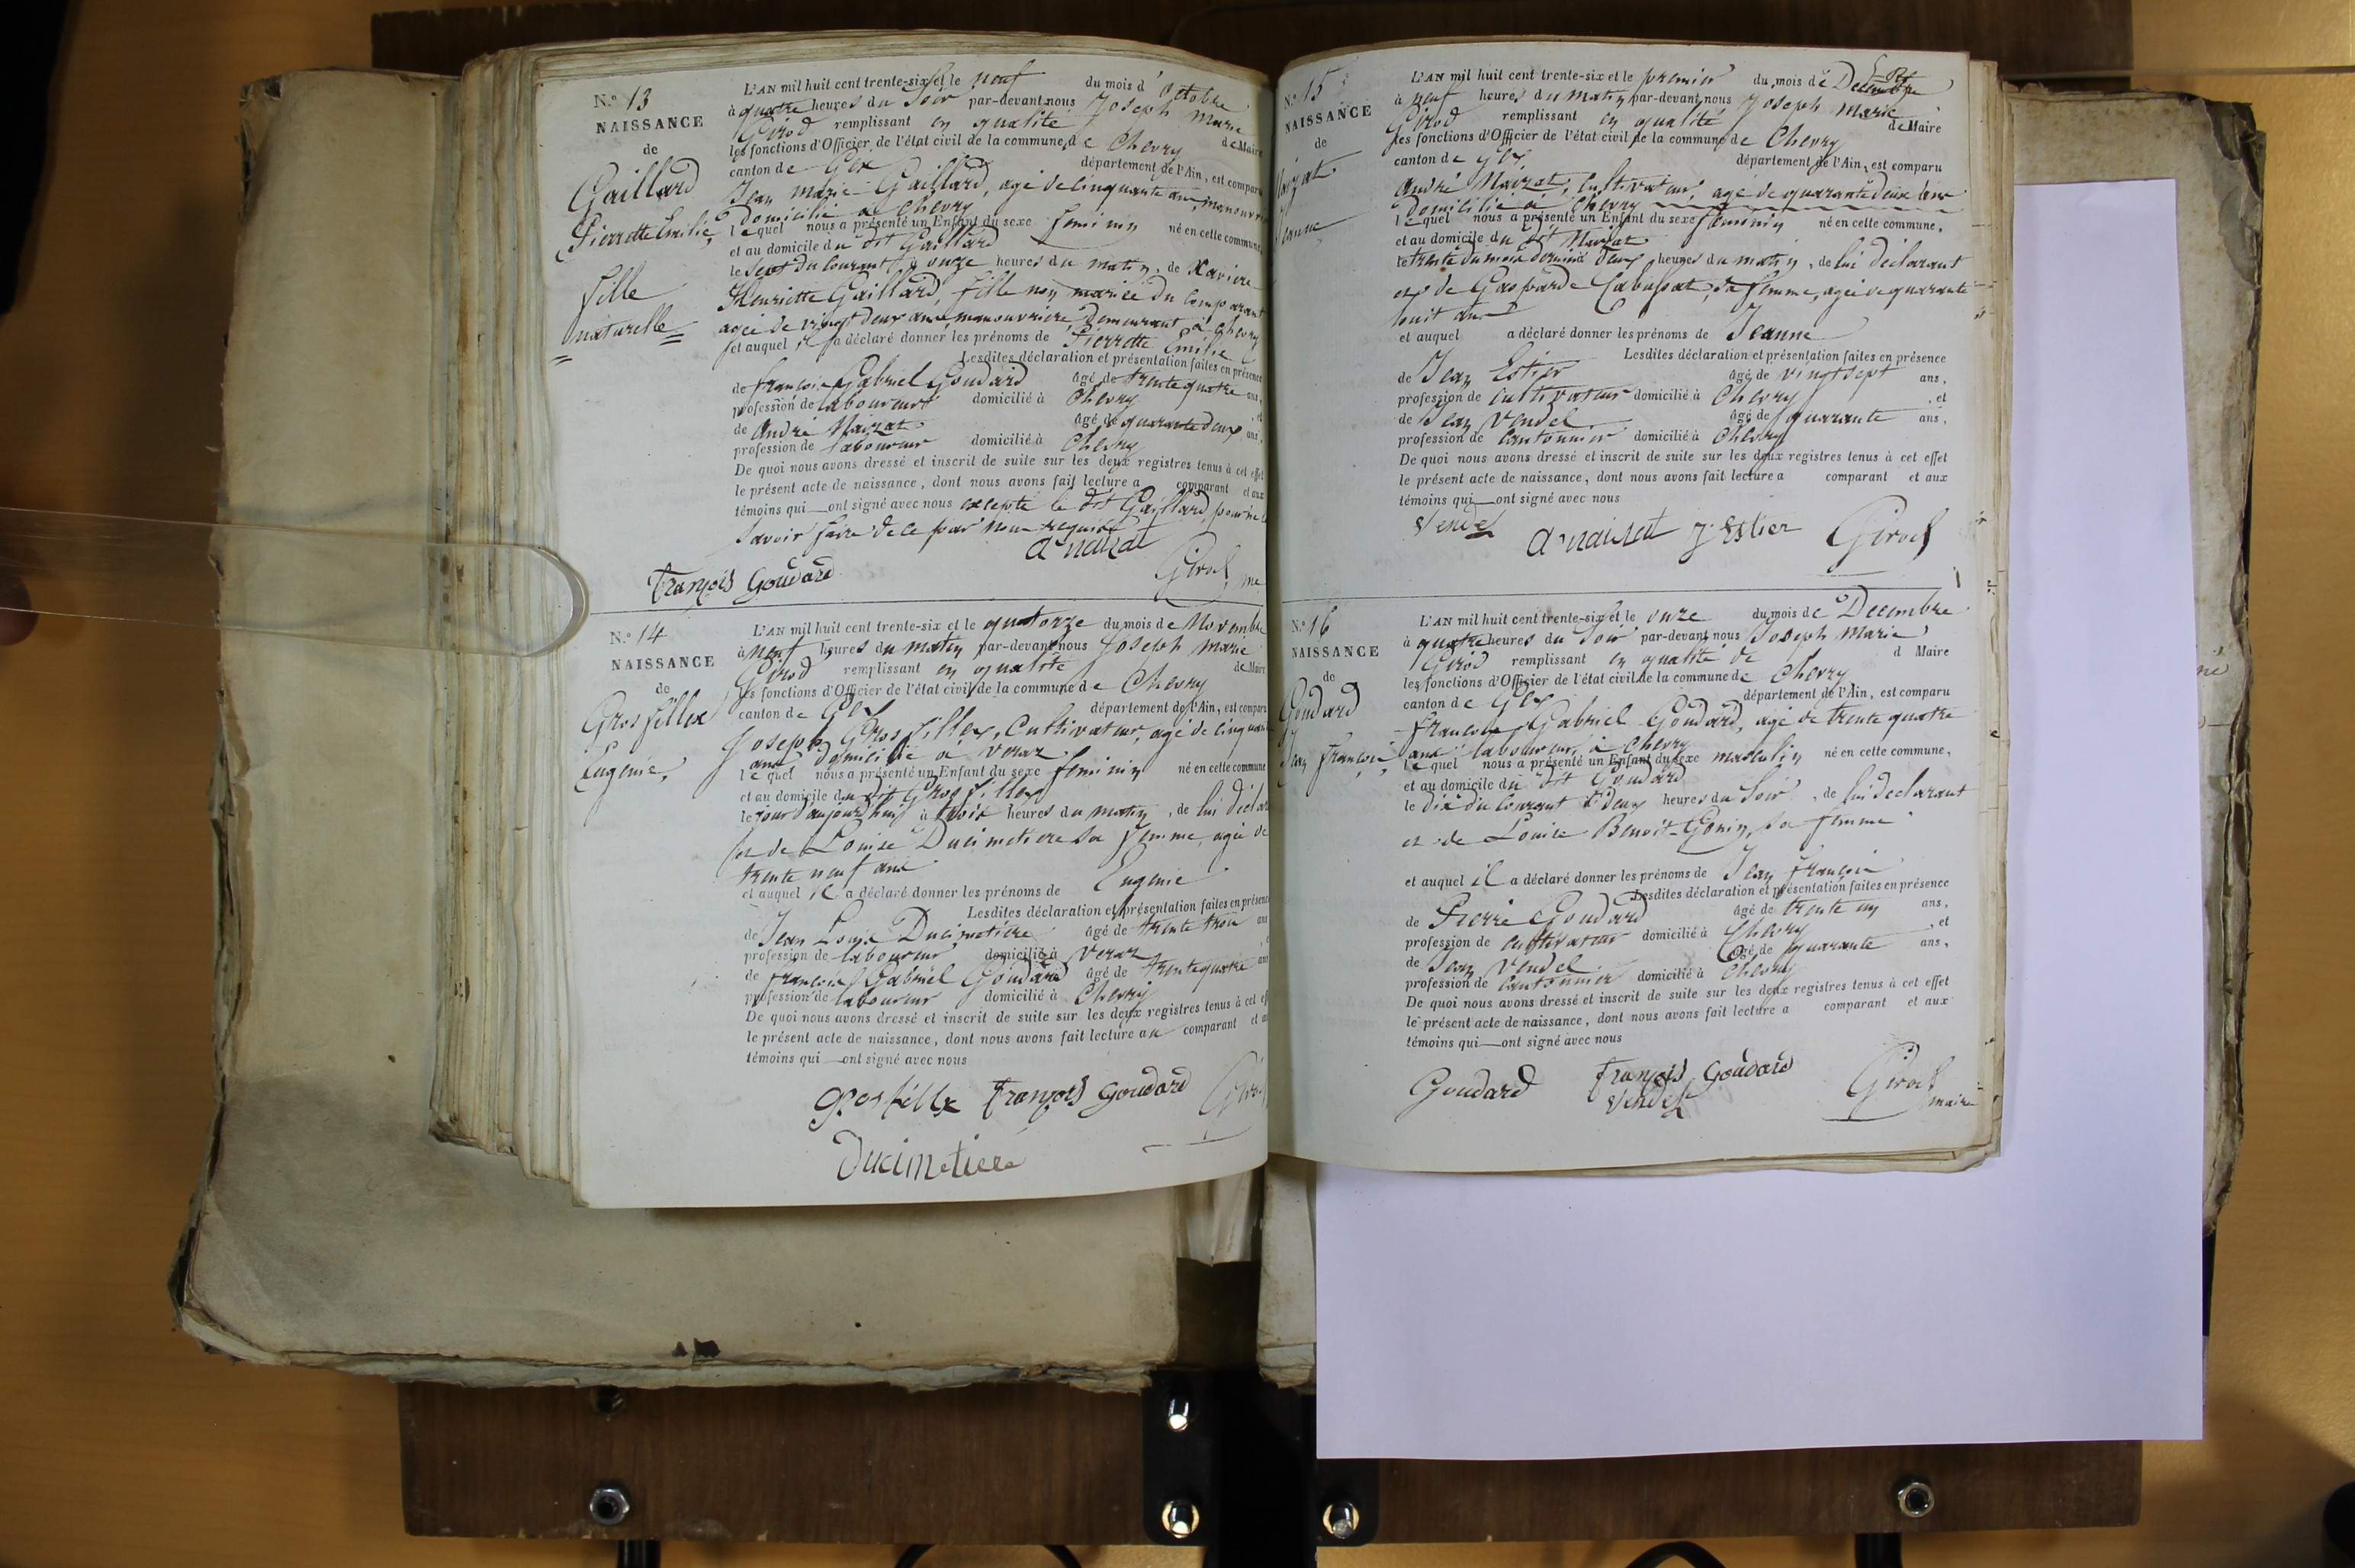 N.° 13
NAISSANCE
de
Gaillard
Pierrette Emilie,
fille
naturelle
L'AN mil huit cent trente-six et le neuf du mois d'Octobre
à quatre heures du Soir par-devant nous Joseph Marie
Girod remplissant en qualité de Maire
les fonctions d'Officier de l'état civil de la commune de Chevry
canton de Gex département de l'Ain, est comparu
Jean marie Gaillard, agé de cinquante ans, manouvrier
domicilié à Chevry
lequel nous a présenté un Enfant du sexe feminin né en cette commune,
et au domicile du dit Gaillard
le Sept du Courant à onze heures du matin, de Xaviere
Henriette Gaillard, fille non mariée du Comparant
agée de vingt deux ans, manouvriere, demeurant à Chevry
et auquel il a déclaré donner les prénoms de Pierrette Emilie
Lesdites déclaration et présentation faites en présence
de françois Gabriel Goudard âgé de trente quatre ans,
profession de laboureur domicilié à Chevry, et
de André Naizat âgé de quarante deux ans,
profession de laboureur domicilié à Chevry
De quoi nous avons dressé et inscrit de suite sur les deux registres tenus à cet effet
le présent acte de naissance, dont nous avons fait lecture a comparant et aux
témoins qui ont signé avec nous excepté le dit Gaillard, pour ne le
Savoir faire de ce par nous requis
a naizat
François Goudard Girod
N.° 14
NAISSANCE
de
Gros fillex
Eugenie,
L'AN mil huit cent trente-six et le quatorze du mois de Novembre
à neuf heures du matin par-devant nous Joseph marie
Girod remplissant en qualité de Maire
les fonctions d'Officier de l'état civil de la commune de Chevry
canton de Gex département de l'Ain, est comparu
Joseph Gros fillex, Cultivateur, agé de cinquante
ans domicilié à veraz
lequel nous a présenté un Enfant du sexe feminin né en cette commune
et au domicile du dit Gros fillex
le jour d'aujourd'hui à trois heures du matin, de lui déclar
et de Louise Ducimetiere sa femme, agée de
trente neuf ans
et auquel il a déclaré donner les prénoms de Eugenie
Lesdites déclaration et présentation faites en présence
de Jean Louis Ducimetière âgé de trente trois ans
profession de laboureur domicilié à veraz
de françois Gabriel Goudard âgé de trente quatre ans
profession de laboureur domicilié à Chevry
De quoi nous avons dressé et inscrit de suite sur les deux registres tenus à cet ef
le présent acte de naissance, dont nous avons fait lecture au comparant et au
témoins qui ont signé avec nous
Grosfillx François Goudard Giro
Ducimetiere
N.° 15
NAISSANCE
de
Naizat
Jeanne
L'AN mil huit cent trente-six et le premier du mois de Decembre
à neuf heures du matin par-devant nous Joseph Marie
Girod remplissant en qualité de Maire
les fonctions d'Officier de l'état civil de la commune de Chevry
canton de Gex département de l'Ain, est comparu
André Naizat, Cultivateur, agé de quarante deux ans
domicilié à Chevry
lequel nous a présenté un Enfant du sexe féminin né en cette commune,
et au domicile du dit Naizat
le trente du mois dernier à deux heures du matin, de lui déclarant
et de Gasparde Cabussat, sa femme, agée de quarante
huit ans
et auquel a déclaré donner les prénoms de Jeanne
Lesdites déclaration et présentation faites en présence
de Jean Estier âgé de vingt sept ans,
profession de Cultivateur domicilié à Chevry, et
de Jean Vendel âgé de quarante ans,
profession de Cantonnier domicilié à Chevry
De quoi nous avons dressé et inscrit de suite sur les deux registres tenus à cet effet
le présent acte de naissance, dont nous avons fait lecture a comparant et aux
témoins qui ont signé avec nous
Vendel a naizat J Estier Girod
N.° 16
NAISSANCE
de
Goudard
Jean françois
L'AN mil huit cent trente-six et le onze du mois de Decembre
à quatre heures du Soir par-devant nous Joseph Marie
Girod remplissant en qualité de d Maire
les fonctions d'Officier de l'état civil de la commune de Chevry
canton de Gex département de l'Ain, est comparu
françois Gabriel Goudard, agé de trente quatre
ans laboureur, à Chevry
lequel nous a présenté un Enfant du sexe masculin né en cette commune,
et au domicile du dit Goudard
le dix du Courant à deux heures du Soir, de lui declarant
et de Louise Benoit-Gonin, sa femme
et auquel il a déclaré donner les prénoms de Jean françois
Lesdites déclaration et présentation faites en présence
de Pierre Goudard âgé de trente un ans,
profession de Cultivateur domicilié à Chevry, et
de Jean Vendel âgé de quarante ans,
profession de Cantonnier domicilié à Chevry
De quoi nous avons dressé et inscrit de suite sur les deux registres tenus à cet effet
le présent acte de naissance, dont nous avons fait lecture a comparant et aux
témoins qui ont signé avec nous
Goudard François Goudard Girod
Vendel maire